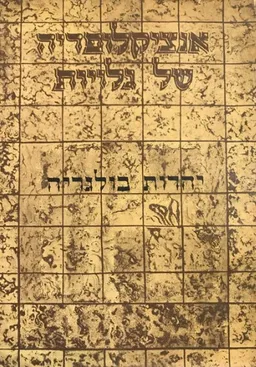 אנציקלופדיה
של גלויות
יהדות בולגריה